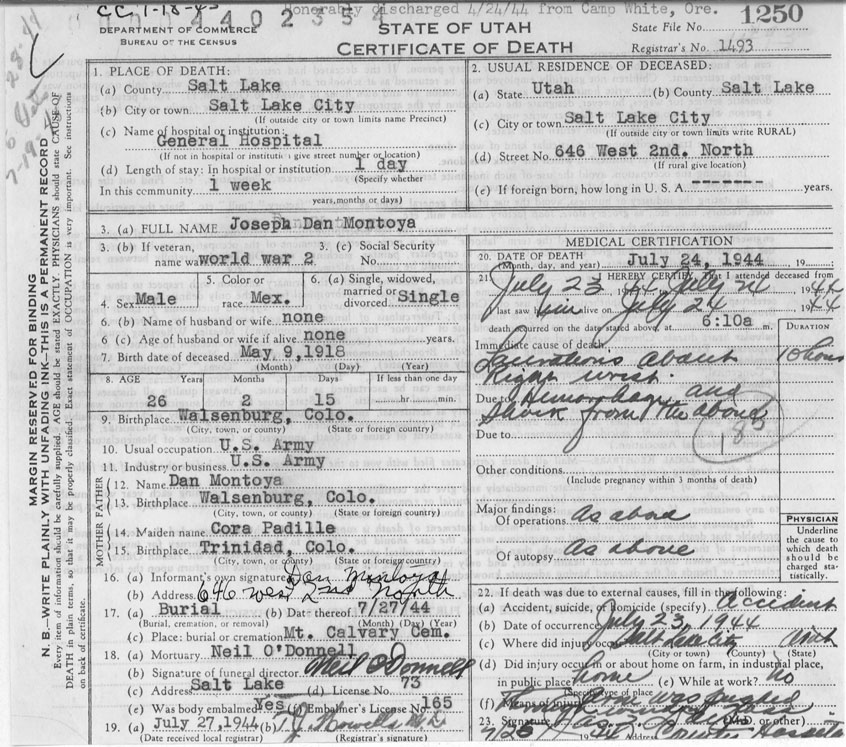 CC 1-18-45
Honorably discharged 4/24/44 from Camp White, Ore.
4402354
1250
DEPARTMENT OF COMMERCE
BUREAU OF THE CENSUS
STATE OF UTAH
CERTIFICATE OF DEATH
State File No.
Registrar's No. 1493
MARGIN RESERVED FOR BINDING
N. B.—WRITE PLAINLY WITH UNFADING INK—THIS IS A PERMANENT RECORD
Every item of information should be carefully supplied. AGE should be stated EXACTLY. PHYSICIANS should state CAUSE OF
DEATH in plain terms, so that it may be properly classified. Exact statement of OCCUPATION is very important. See instructions
on back of certificate.
1. PLACE OF DEATH:
(a) County Salt Lake
(b) City or town Salt Lake City
(If outside city or town limits name Precinct)
(c) Name of hospital or institution:
General Hospital
(If not in hospital or institution give street number or location)
(d) Length of stay: In hospital or institution 1 day
(Specify whether
In this community 1 week
years, months or days)
2. USUAL RESIDENCE OF DECEASED:
(a) State Utah (b) County Salt Lake
(c) City or town Salt Lake City
(If outside city or town limits write RURAL)
(d) Street No. 646 West 2nd. North
(If rural give location)
(e) If foreign born, how long in U. S. A. ------- years.
3. (a) FULL NAME Joseph Dan Montoya
3. (b) If veteran,
name war world war 2
3. (c) Social Security
No.
4. Sex Male
5. Color or
race Mex.
6. (a) Single, widowed,
married or
divorced Single
6. (b) Name of husband or wife none
6 (c) Age of husband or wife if alive none years.
7. Birth date of deceased May 9, 1918
(Month) (Day) (Year)
8. AGE Years Months Days If less than one day
26 2 15 hr. min.
9. Birthplace Walsenburg, Colo.
(City, town, or county) (State or foreign country)
10. Usual occupation U.S. Army
11. Industry or business U.S. Army
FATHER
12. Name Dan Montoya
13. Birthplace Walsenburg, Colo.
(City, town, or county) (State or foreign country)
MOTHER
14. Maiden name Cora Padille
15. Birthplace Trinidad, Colo.
(City, town, or county) (State or foreign country)
16. (a) Informant's own signature Dan Montoya
(b) Address 646 West 2nd North
17. (a) Burial (b) Date thereof 7/27/44
(Burial, cremation, or removal) (Month) (Day) (Year)
(c) Place: burial or cremation Mt. Calvary Cem.
18. (a) Mortuary Neil O'Donnell
(b) Signature of funeral director Neil O'Donnell
(c) Address Salt Lake (d) License No. 73
(e) Was body embalmed Yes (f) Embalmer's License No. 165
19. (a) July 27, 1944 (b) T J Howells
(Date received local registrar) (Registrar's signature)
MEDICAL CERTIFICATION
20. DATE OF DEATH July 24, 1944 19
(Month, day, and year)
21. I HEREBY CERTIFY, That I attended deceased from
July 23 1944 to July 24 1944
last saw him alive on July 24 1944
death occurred on the date stated above, at 6:10a m.
DURATION
Immediate cause of death
Lacerations about 10 hours
Right wrist.
Due to Hemorrhage and
Shock from the above
Due to
Other conditions
(Include pregnancy within 3 months of death)
Major findings:
Of operations As above
Of autopsy As above
PHYSICIAN
Underline
the cause to
which death
should be
charged sta-
tistically.
22. If death was due to external causes, fill in the following:
(a) Accident, suicide, or homicide (specify) Accident
(b) Date of occurrence July 23, 1944
(c) Where did injury occur Salt Lake City Utah
(City or town) (County) (State)
(d) Did injury occur in or about home on farm, in industrial place,
in public place? home (e) While at work? no
(Specify type of place)
(f) Means of injury was pushed
23. Signature (M.D. or other)
Address County Hospital